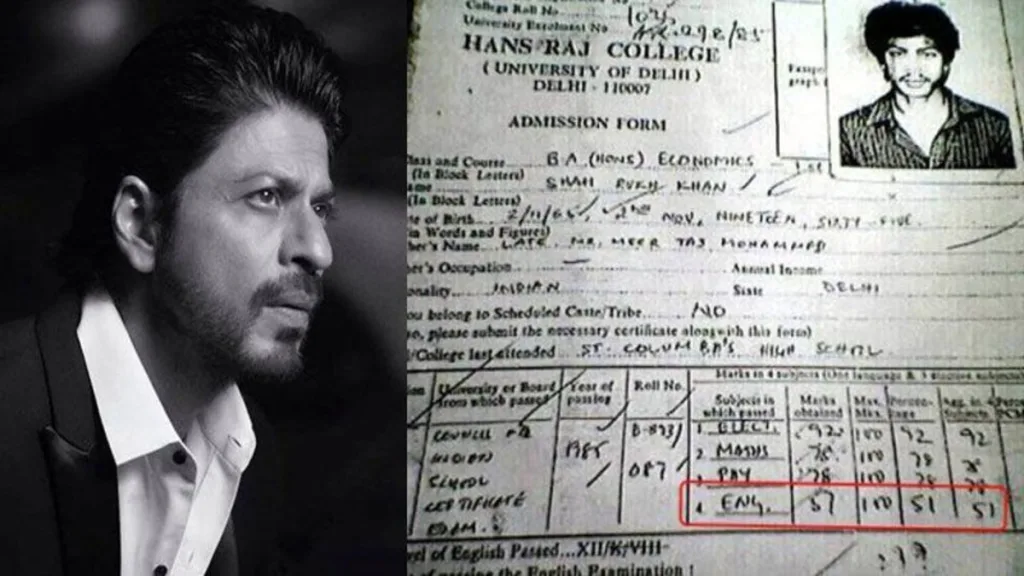 College Roll No.
University Enrolment No
HANS RAJ COLLEGE
( UNIVERSITY OF DELHI )
DELHI - 110007
Passpo
graph
ADMISSION FORM
lass and Course B.A (HONS) ECONOMICS
(In Block Letters)
ame SHAH RUKH KHAN
(In Block Letters)
te of Birth 2/11/65, 2nd NOV, NINETEEN, SIXTY FIVE
in Words and Figures)
her's Name LATE MR. MEER TAJ MOHAMMED
her's Occupation Annual Income
onality INDIAN State DELHI
ou belong to Scheduled Caste/Tribe. NO
o, please submit the necessary certificate alongwith this form)
/College last attended ST. COLUMBA'S HIGH SCHOOL
Marks in 4 subjects (One language & 3 elective subjects)
University or Board from which passed Year of passing Roll No. Subjects in which passed Marks obtained Max. Percen- tage Agg. in 4 Subjects
COUNCIL INDIAN SCHOOL CERTIFICATE EXAM. 1985 B-873/ 087
1 ELECT. 92 100 92 92
2 MATHS 78 100 78 78
3 PHY 78 100 78 78
4 ENG. 51 100 51 51
vel of English Passed...XII/X/VIII
of passing the English Examination